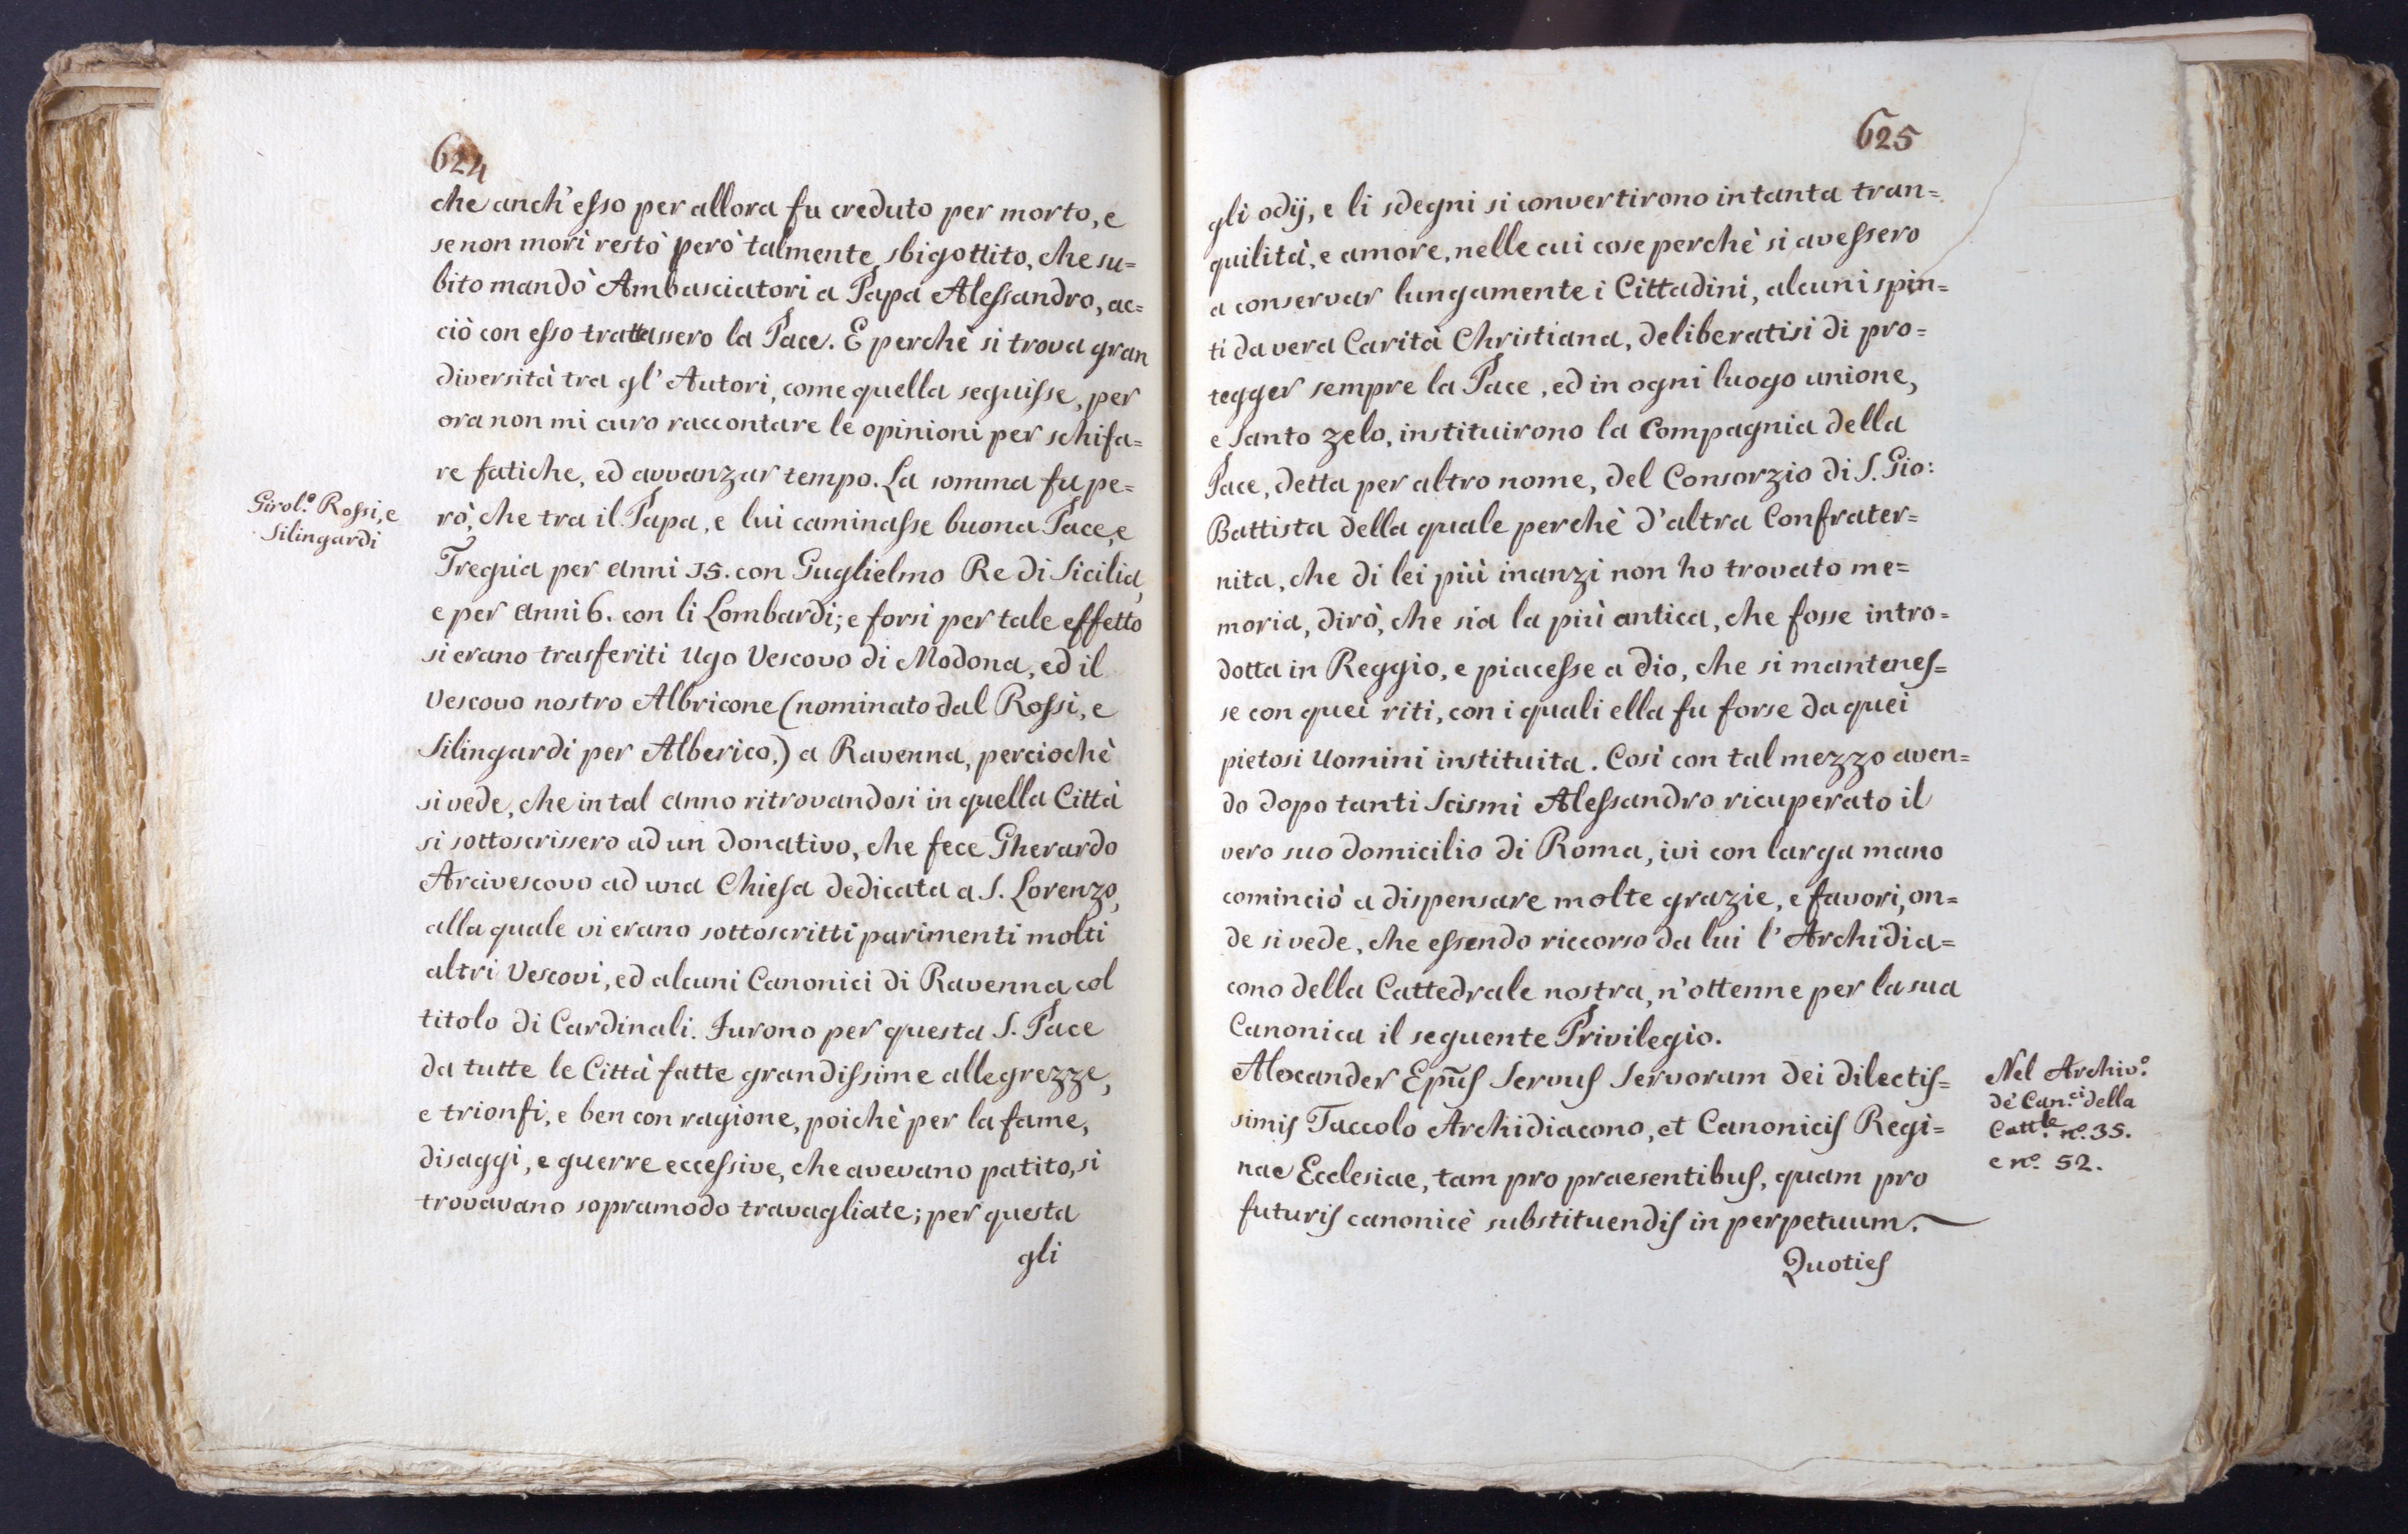 624
che anch'esso per allora fu creduto per morto, e
se non morì restò però talmente sbigottito, che su=
bito mandò Ambasciatori a Papa Alessandro, ac=
ciò con esso trattassero la Pace. E perchè si trova gran
diversità tra gl'Autori, come quella seguisse, per
ora non mi curo raccontare le opinioni per schifa=
re fatiche, ed avvanzar tempo. La somma fu pe=
Girol.º Rossi, e
Silingardi
rò, che tra il Papa, e lui caminasse buona Pace, e
Tregua per anni 15. con Guglielmo Re di Sicilia,
e per anni 6. con li Lombardi; e forsi per tale effetto
si erano trasferiti Ugo Vescovo di Modona, ed il
Vescovo nostro Albricone (nominato dal Rossi, e
Silingardi per Alberico,) a Ravenna, perciochè
si vede, che in tal anno ritrovandosi in quella Città
si sottoscrissero ad un donativo, che fece Gherardo
Arcivescovo ad una Chiesa dedicata a S. Lorenzo,
alla quale vi erano sottoscritti parimenti molti
altri Vescovi, ed alcuni Canonici di Ravenna col
titolo di Cardinali. Furono per questa S. Pace
da tutte le Città fatte grandissime allegrezze,
e trionfi, e ben con ragione, poichè per la fame,
disaggi, e guerre eccessive, che avevano patito, si
trovavano sopramodo travagliate; per questa
gli
625
gli odij, e li sdegni si convertirono in tanta tran=
quilità, e amore, nelle cui cose perchè si avessero
a conservar lungamente i Cittadini, alcuni spin=
ti da vera Carità Christiana, deliberatisi di pro=
tegger sempre la Pace, ed in ogni luogo unione,
e Santo zelo, instituirono la Compagnia della
Pace, detta per altro nome, del Consorzio di S. Gio:
Battista della quale perchè d'altra Confrater=
nita, che di lei più inanzi non ho trovato me=
moria, dirò, che sia la più antica, che fosse intro=
dotta in Reggio, e piacesse a dio, che si mantenes=
se con quei riti, con i quali ella fu forse da quei
pietosi Uomini instituita. Così con tal mezzo aven=
do dopo tanti Scismi Alessandro ricuperato il
vero suo domicilio di Roma, ivi con larga mano
cominciò a dispensare molte grazie, e favori, on=
de si vede, che essendo riccorso da lui l'Archidia=
cono della Cattedrale nostra, n'ottenne per la sua
Canonica il seguente Privilegio.
Alexander Ep̄us Servus Servorum Dei dilectis=
simis Taccolo Archidiacono, et Canonicis Regi=
nae Ecclesiae, tam pro praesentibus, quam pro
futuris canonicè substituendis in perpetuum.
Nel Archiv.º
de' Can.ci della
Catt.le nº. 35.
e nº. 52.
Quoties